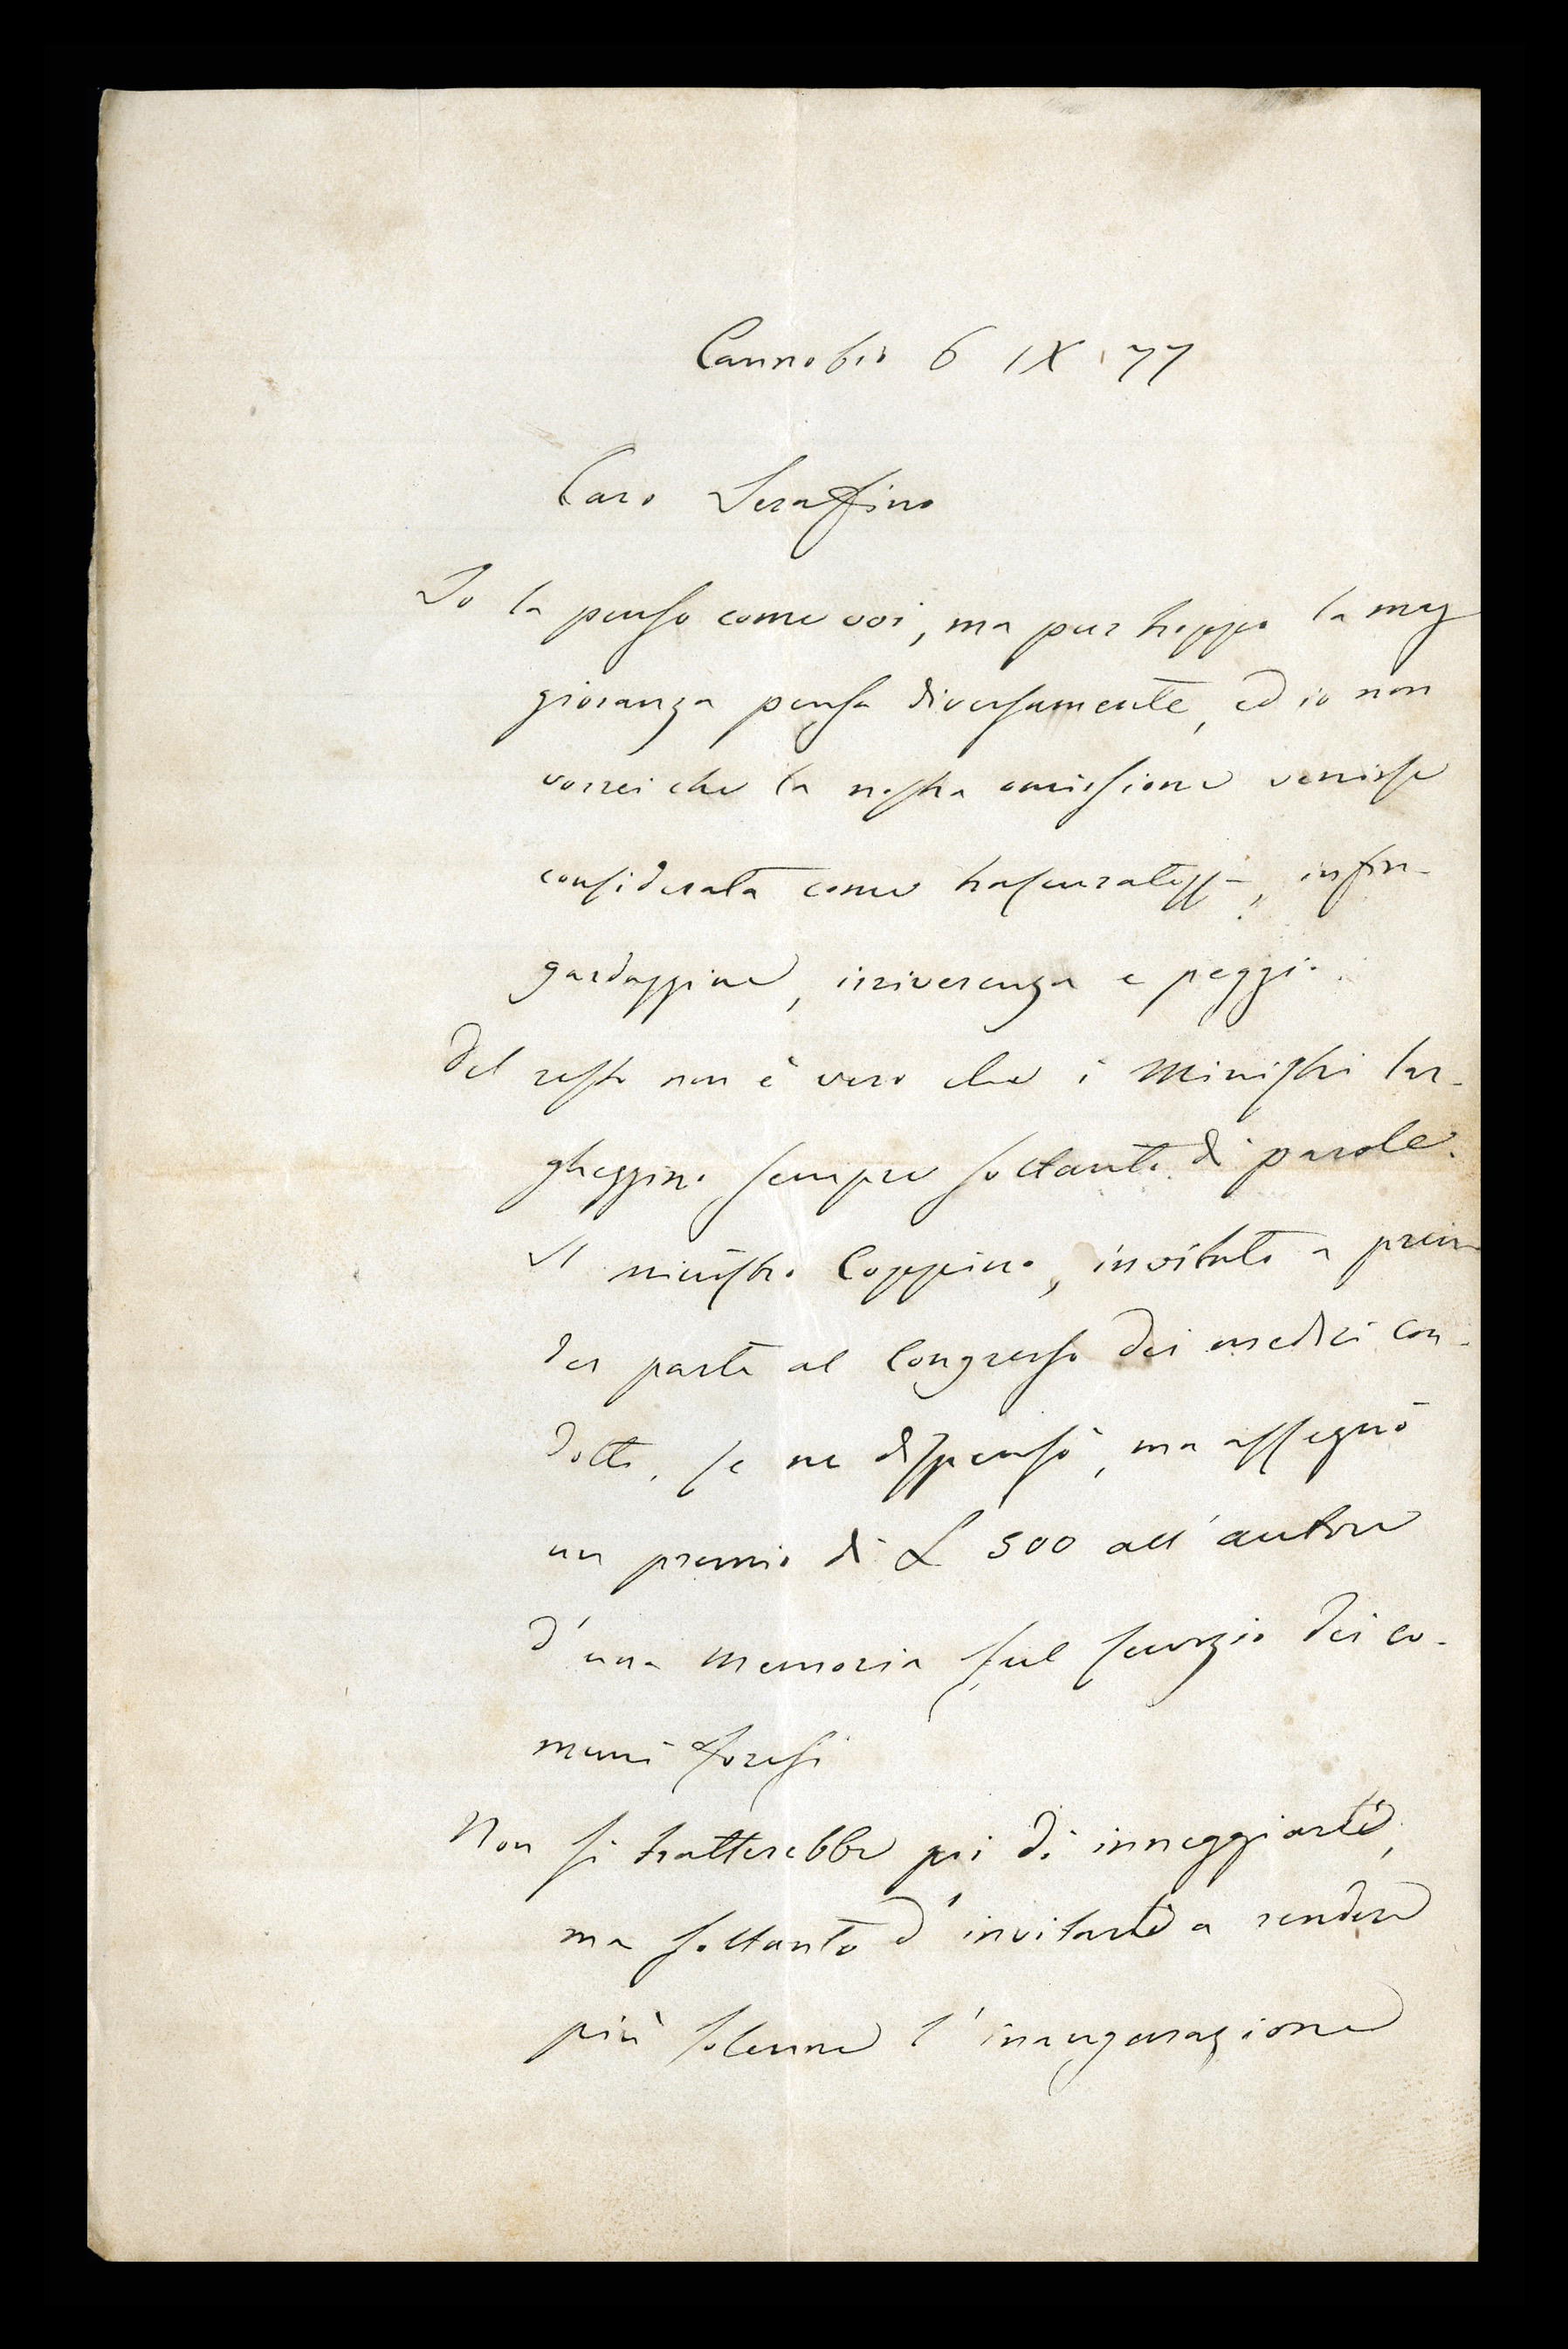 Cannobio 6 IX 77
Caro Serafino
Io la penso come voi, ma pur troppo la mag
gioranza pensa diversamente, ed io non
vorrei che la nostra omissione venisse
considerata come trascuratezza, infin-
gardaggine, irriverenza e peggio.
Del resto non è vero che i Ministri lar-
gheggino sempre soltanto di parole.
Il ministro Coppino, invitato a pren
der parte al Congresso dei medici con-
dotti, se ne dispensò, ma assegnò
un premio di L 500 all'autore
d'una memoria sul servizio dei co-
muni foresi
Non si tratterebbe poi di inneggiarti,
ma soltanto d'invitarti a rendere
più solenne l'inaugurazione